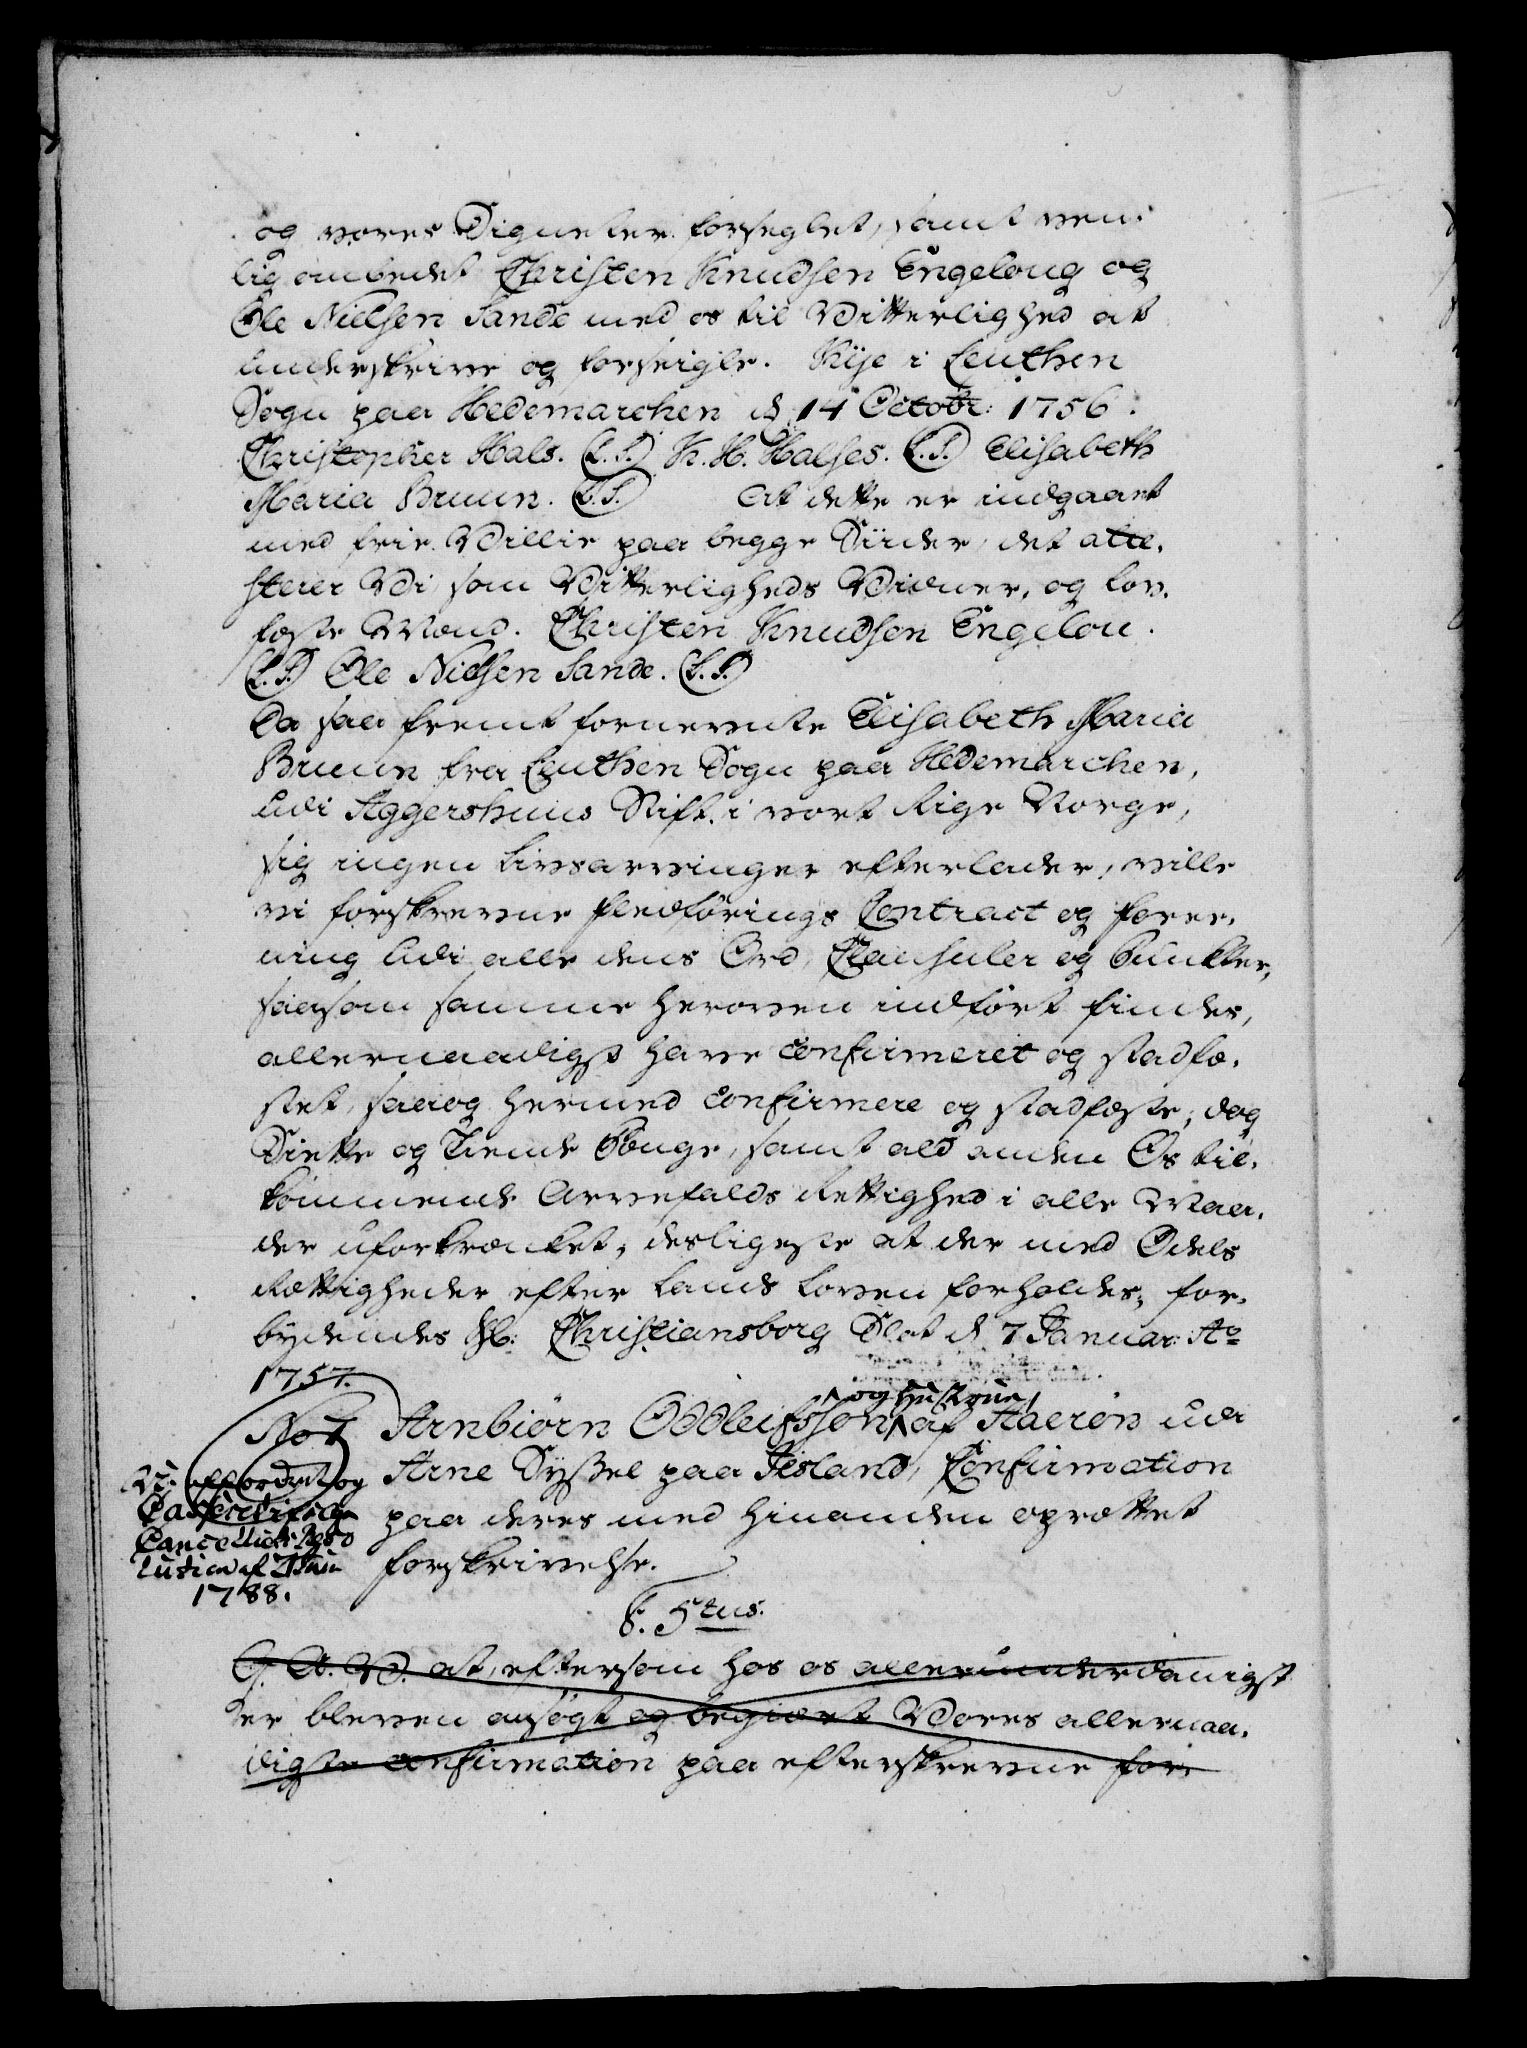 og vores Signeter forseglet, samt ven-
lig ombedet Christen Knudsen Engeloug og
Ole Nielsen Sande med os til Vitterlighed at
underskrive og forseigle. Kise i Leuthen
Sogn paa Hedemarchen d 14 Octobr: 1756.
Christopher Hals. (L.S.) K. H. Halses. (L.S.) Elisabeth
Maria Bruun. (L.S.) At dette er indgaaet
med frie Villie paa begge Siider, det atte-
sterer Vi som Vitterligheds Vidner, og lov-
faste Mænd. Christen Knudsen Engelou.
(L.S.) Ole Nielsen Sande. (L.S.)
Da saa fremt fornevnte Elisabeth Maria
Bruun fra Leuthen Sogn paa Hedemarchen,
udi Aggershuus Stift i vort Rige Norge,
sig ingen Livsarvinger efterlader, ville
vi forskrevne Fledførings Contract og forer-
ning udi alle dens Ord, Clausuler og Puncter,
saasom samme heroven indført findes,
allernaadigst have confirmeret og stadfæ-
stet, saa og hermed confirmere og stadfæste; dog
Siette og Tiende Penge, samt ald anden Os til-
kommende Arvefalds Rettighed i alle Maa-
der uforkrænket, desligeste at der med Odels
Rettigheder efter Lands Loven forholdes, for-
bydendes H: Christiansborg Slot d 7 Januar: Aº
1757.
No 7 Arnbiørn Oddleifsson ∧ og Hustrue, af Aaerøn udi
Arne Syssel paa Iisland, Confirmation
paa deres med hinanden oprættet
forskrivelse.
Er efforderet og
Casseret ifølge
Cancellie Reso
lution af 7 Juni
1788.
C. 5tus.
G. A. V. at, eftersom hos os allerunderdanigst
er bleven ansøgt og begiært Vores allernaa-
digste confirmation paa efterskrevne for-